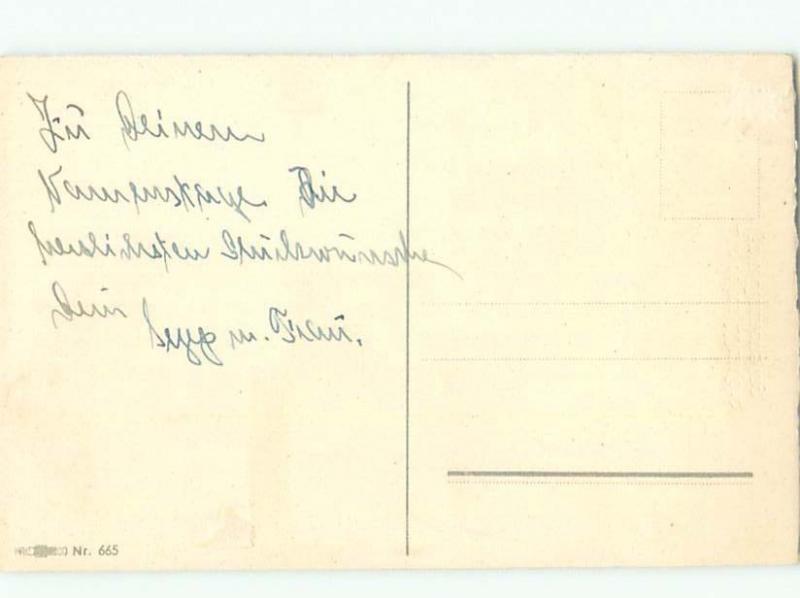 Zu Deinem
Namenstage Die
herzlichsten Glückwünsche
Dein
Sepp u. Frau.
Nr. 665